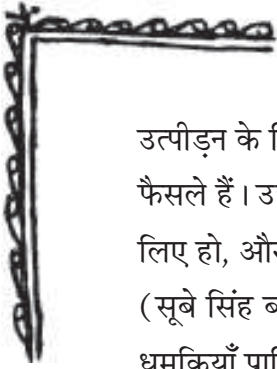 उत्पीड़न के
फैसले हैं। उ
लिए हो, और
(सूबे सिंह ब
धमकियाँ